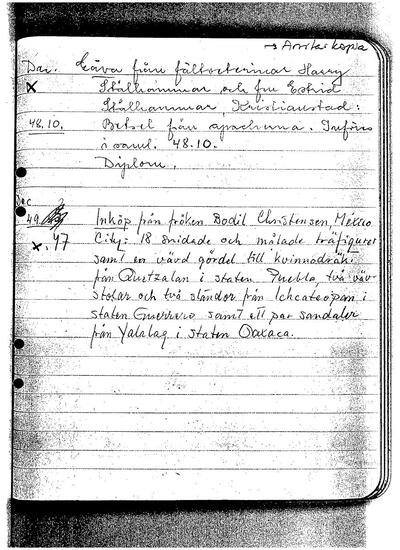 → Avskr. kopia
Dec. Gåva från fältveterinär Harry
x Stålhammar och fru Estrid
Stålhammar, Kristianstad:
48.10. Betsel från apacherna. Införes
i saml. 48.10.
Diplom.
Dec
49. Inköp från fröken Bodil Christensen, México
x. 47 City: 18 snidade och målade träfigurer
samt en vävd gördel till kvinnodräkt
från Quetzalan i staten Puebla, två väv-
stolar och två sländor från Ichcateopan i
staten Guerrero samt ett par sandaler
från Yalalag i staten Oaxaca.